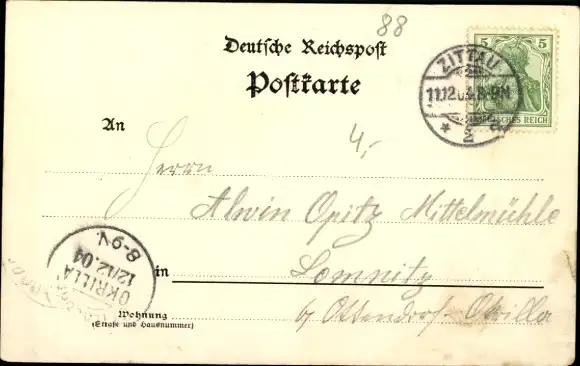 88
Deutsche Reichspost
Postkarte
5 5
DEUTSCHES REICH
ZITTAU
11.12.04.8-9N
* 2 a
An
4,-
Herrn
Alwin Opitz Mittelmühle
in Lomnitz
by Ottendorf-Okrilla
Wohnung
(Straße und Hausnummer)
8-9V.
12/12.04
OKRILLA